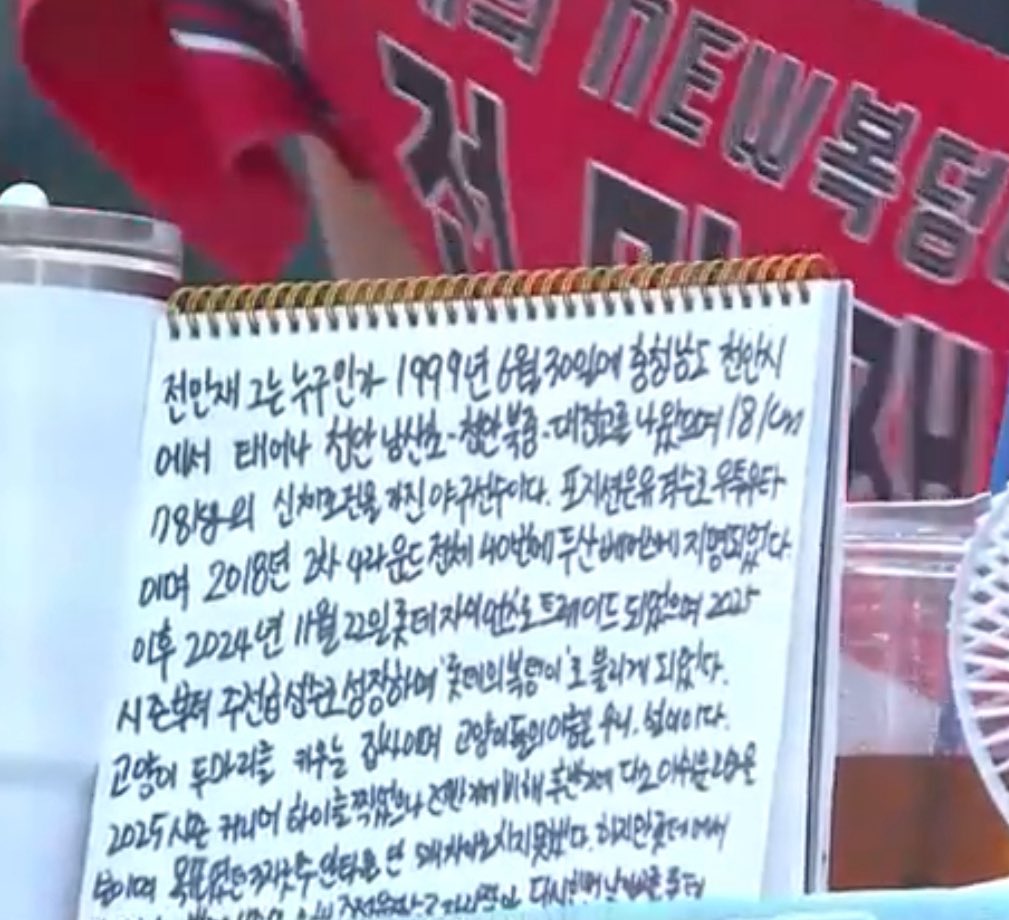 NEW복덩
전
민
재
전민재 그는 누구인가 1999년 6월 30일에 충청남도 천안시
에서 태어나 천안 남산초-천안북중-대전고를 나왔으며 181cm
78kg의 신체조건을 가진 야구선수이다. 포지션은 유격수로 우투우타
이며 2018년 2차 4라운드 전체 40번에 두산베어스에 지명되었다.
이후 2024년 11월 22일 롯데 자이언츠로 트레이드 되었으며 2025
시즌부터 주전급 선수로 성장하여 '롯데의 복덩이'로 불리게 되었다.
고양이 두마리를 키우는 집사이며 고양이들의 이름은
2025시즌 커리어 하이를 찍었으나 전반기에 비해 후반기에 다소 아쉬운 모습을
보이며 목표했던 세자릿수 안타를 단 채우지 못했다. 하지만 롯데에서
다시한번